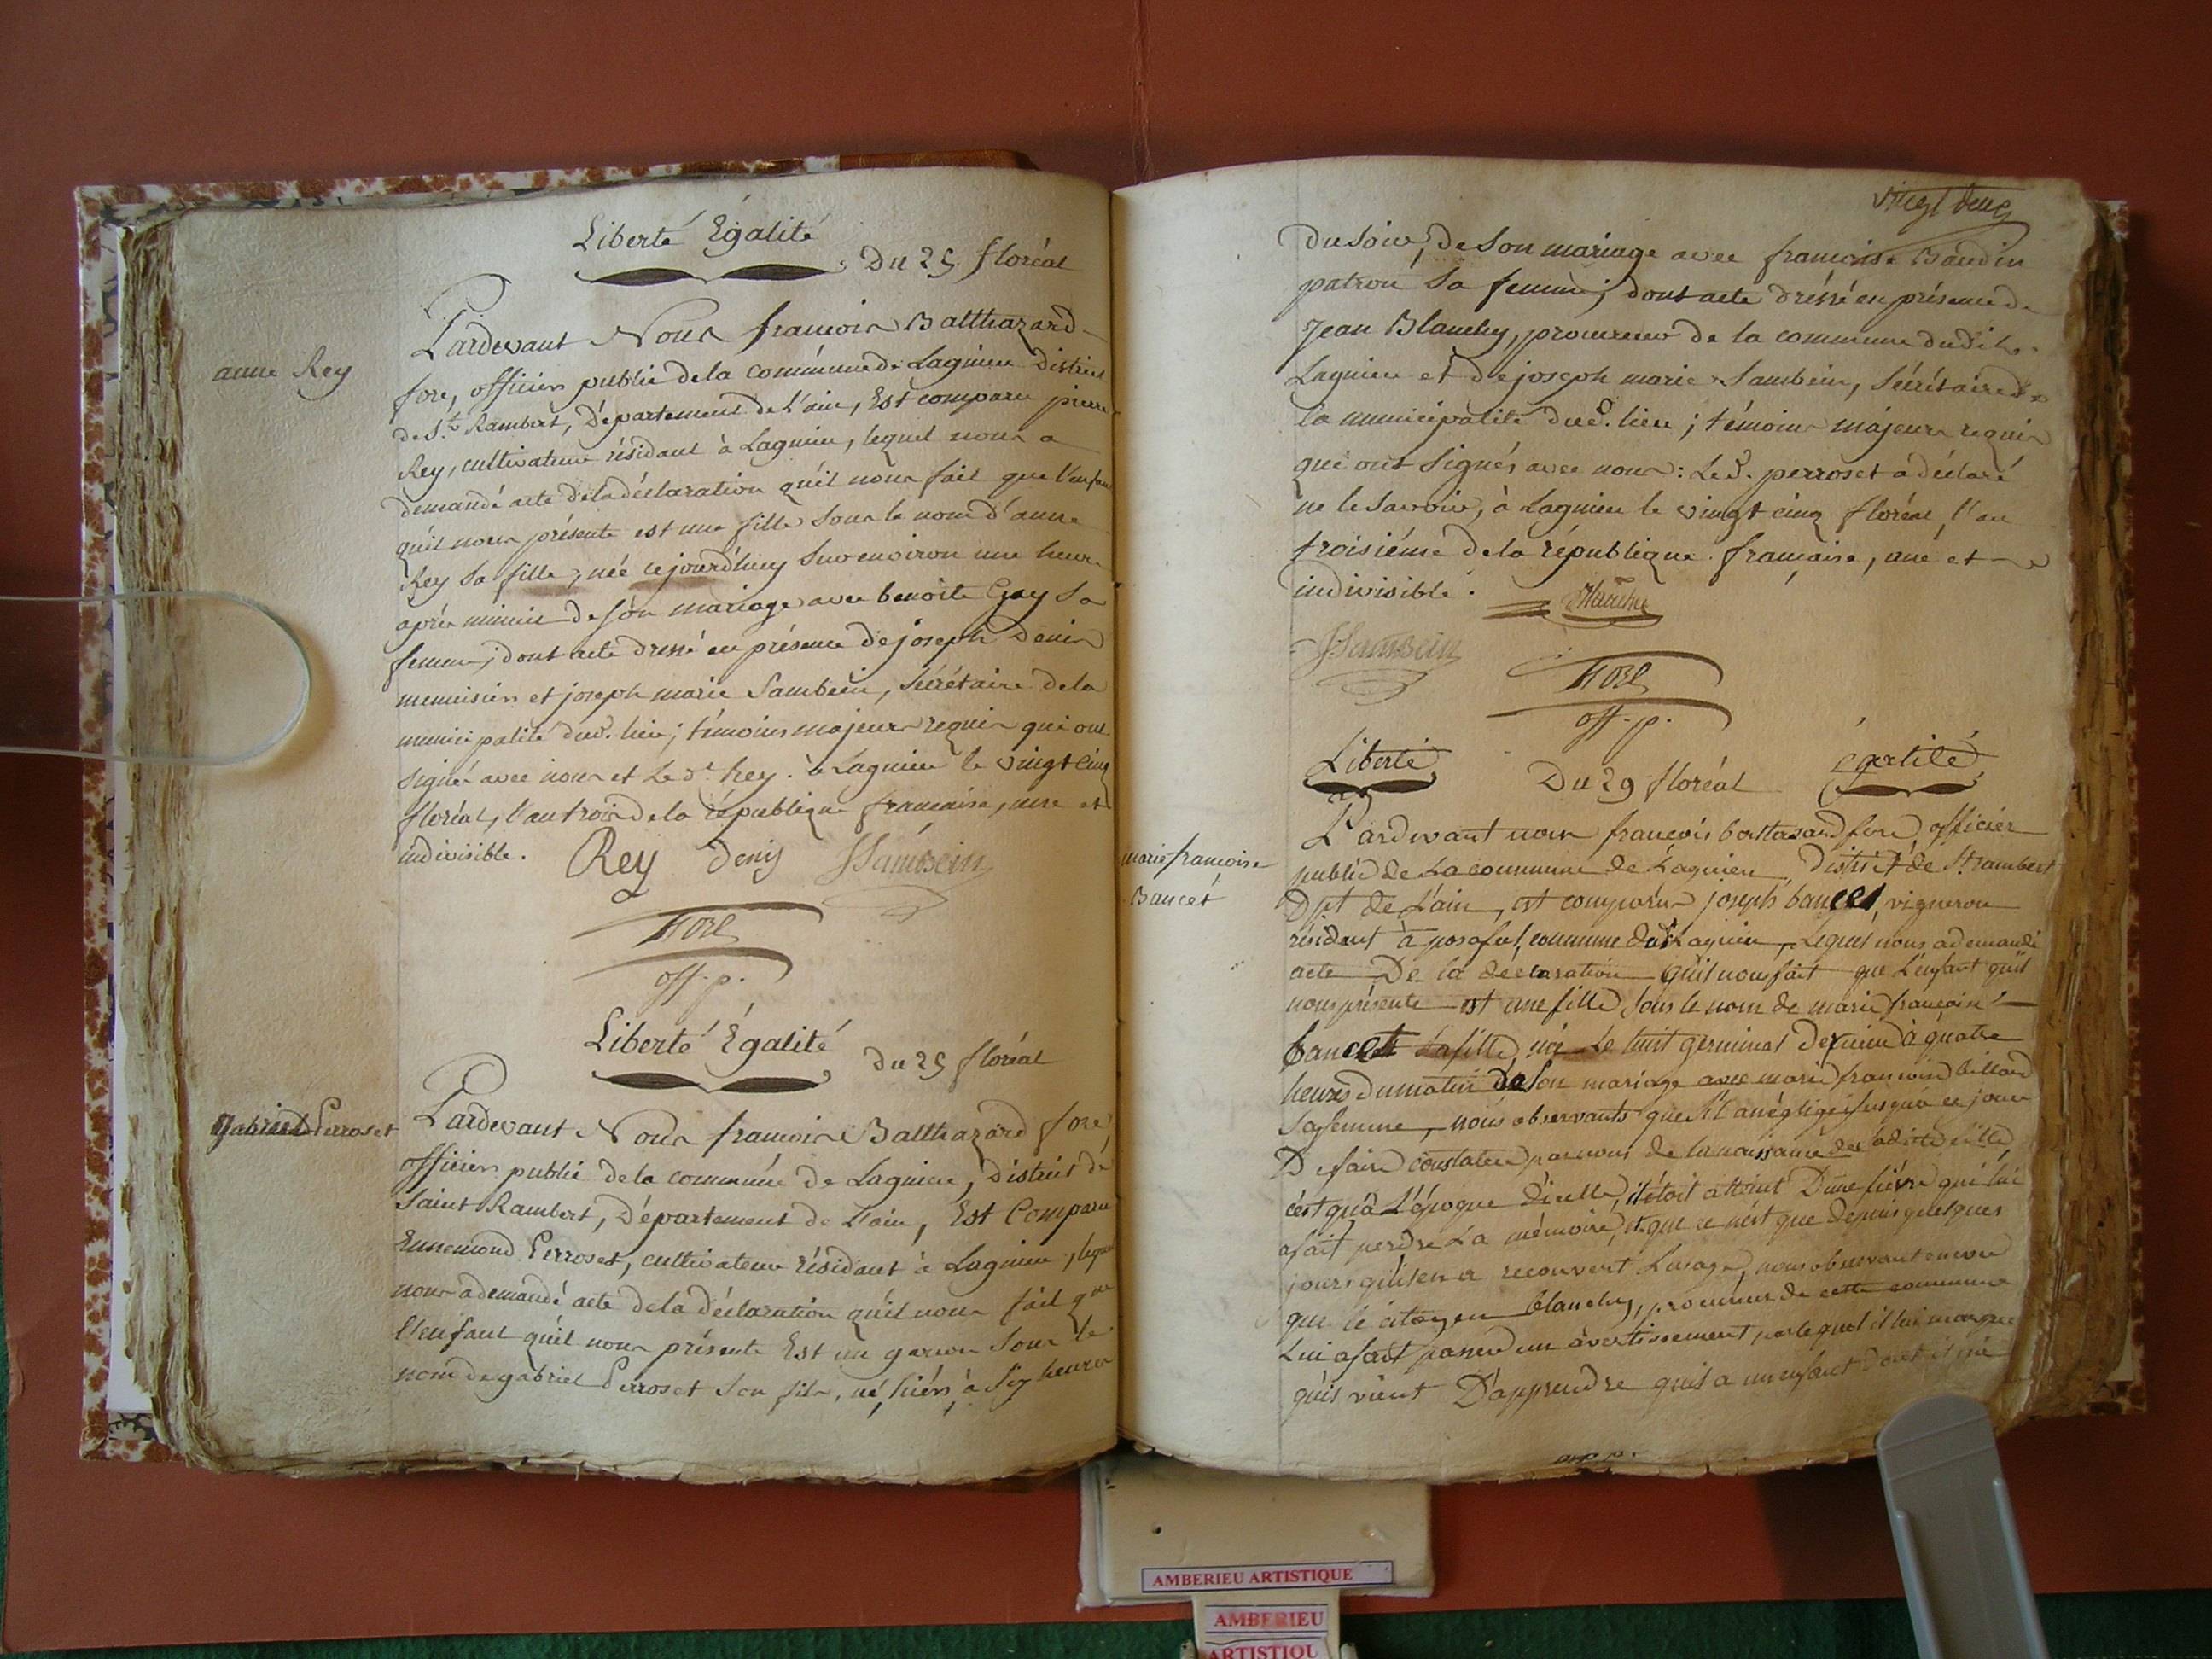 Liberté Égalité
Du 25 floréal
anne Rey
Pardevant Nous francois Balthazard
fore, officier public de la commune de Lagnieu District
de St. Rambert, Département de L'ain, Est comparu pierre
Rey, cultivateur résidant à Lagnieu, lequel nous a
demandé acte de la déclaration qu'il nous fait que l'enfant
qu'il nous présente est une fille sous le nom d'anne
Rey sa fille, née cejourd'huy sur environ une heure
après minuit de son mariage avec benoite Gay sa
femme; dont acte dressé en présence de joseph Denis
menuisier et joseph marie Sambein, Sécrétaire de la
municipalité dud. lieu; témoins majeurs requis qui ont
signé avec nous et Le d. Rey. à Lagnieu le vingt cinq
floréal, l'an trois de la république francaise, une et
indivisible.
Rey Denis JSambein
fore
off. p.
Liberté Égalité
Du 25 floréal
gabriel Perroset
Pardevant Nous francois Balthazard fore,
officier public de la commune de Lagnieu, District de
Saint Rambert, Département de L'ain, Est Comparu
Ennemond Perroset, cultivateur résidant à Lagnieu, lequel
nous a demandé acte de la déclaration qu'il nous fait que
l'enfant qu'il nous présente Est un garcon sous le
nom de gabriel Perroset son fils, né hièr, à six heures
vingt deux
du soir, de son mariage avec francoise Baudin
patron sa femme; dont acte dréssé en présence de
Jean Blanchy, procureur de la commune dudit
Lagnieu et de joseph marie Sambein, Sécrétaire de
la municipalité dud. lieu; témoins majeurs requis
qui ont signés avec nous: Le d. perroset a déclaré
ne le savoir, à Lagnieu le vingt cinq floréal, l'an
troisième de la république francaise, une et
indivisible.
Blanchy
JSambein
fore
off. p.
Liberté
Du 29 floréal
égalité
marie francoise
Bancet
Pardevant nous francois baltasard fore officier
public de La commune de Lagnieu, District de St. rambert
Dpt de L'ain, est comparu joseph bancet, vigneron
résident à posafol, commune dud. Lagnieu, Lequel nous a demandé
acte De la déclaration qu'il nous fait que L'enfant qu'il
nous présente est une fille, sous le nom de marie francoise
bancet sa fille, née Le huit germinal Dernier à quatre
heures du matin de son mariage avec marie francoise billard
sa femme, nous observants que s'il a négligé jusqu'a ce jour
De faire constater par nous de la naissance de ladite fille
c'est qu'à L'époque D'icelle, il étoit attaint D'une fièvre qui lui
a fait perdre La mémoire, et que ce n'est que depuis quelques
jours qu'il en a recouvert L'usage, nous observant encore
que le citoyen blanchy, procureur de cette commune
Lui a fait passer un avertissement par lequel il lui marque
qu'il vient D'apprendre qu'il a un enfant dont il n'a
AMBERIEU ARTISTIQUE
AMBERIEU
ARTISTIQU